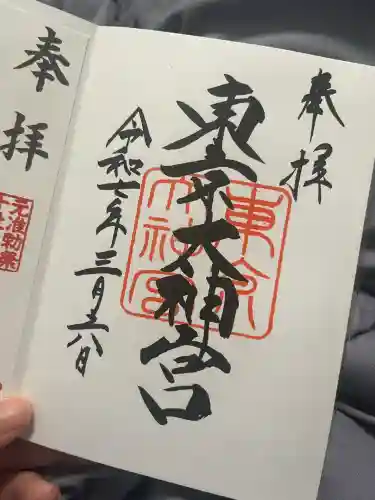 奉拝
東京大神宮
東京大神宮
令和七年三月六日
奉拝
准勅祭